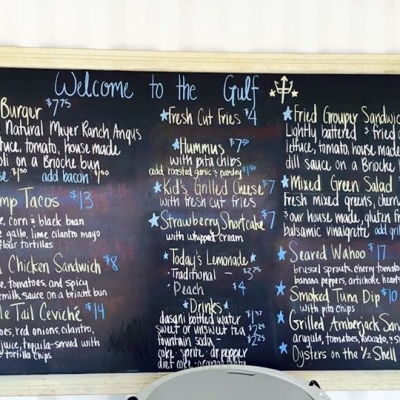 Welcome to the Gulf
Burger $7.75
Natural Meyer Ranch Angus
tuce, tomato, house made
oli on a Brioche bun
se $.50 add bacon $1.50
mp Tacos $13
e, corn & black bean
e gallo, lime cilantro mayo
flour tortillas
Chicken Sandwich $8
e, tomatoes, and spicy
ermilk sauce on a briochet bun
le Tail Ceviché $14
oes, red onions, cilantro,
juice, tequila - served with
tortilla chips
Fresh Cut Fries $4
Hummus $7.50
with pita chips
add: roasted garlic & parsley $1.50
Kid's Grilled Cheese $7
with fresh cut fries
Strawberry Shortcake $7
with whipped cream
Today's Lemonade
Traditional - $3.75
Peach $4
Drinks
dasani bottled water $2
sweet or unsweet tea $2.25
fountain soda -
coke · sprite · dr pepper
diet coke
Fried Grouper Sandwic
Lightly battered & fried
lettuce, tomato, house mad
dill sauce on a Brioche b
Mixed Green Salad
Fresh mixed greens, cherry
& our house made, gluten f
balsamic vinaigrette add gril
Seared Wahoo $17
brussel sprouts, cherry tomato
banana peppers, artichoke hearts
Smoked Tuna Dip $10
with pita chips
Grilled Amberjack San
arugula, tomatoes, avocado &
Oysters on the 1/2 Shell